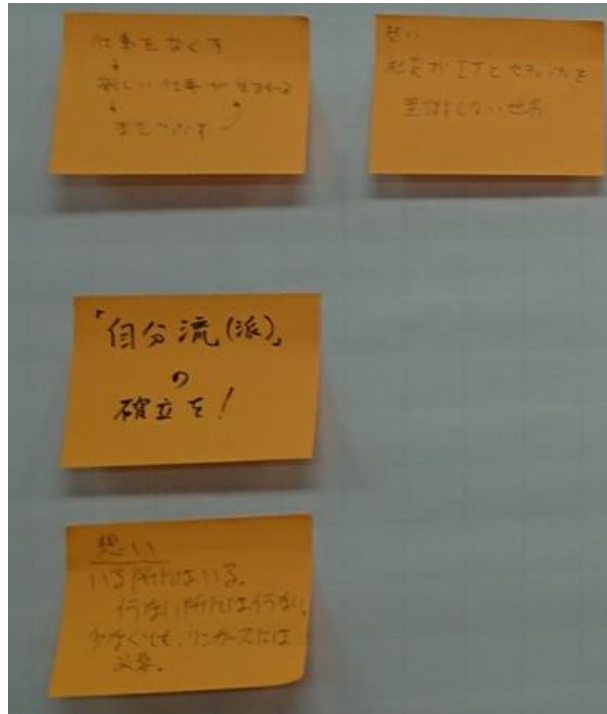 仕事をなくす
↓
新しい仕事が生まれる
↓
またこなす
想い
社員がITとセキュリティを
意識しない世界
「自分流(派)」
の
確立を!
想い
いる所にはいる。
行ない所には行ない。
少なくても、
には
必要。